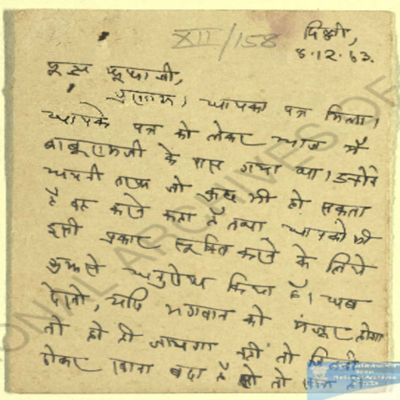 XII/158
दिल्ली,
8.12.63.
पूज्य फूफाजी,
प्रणाम। आपका पत्र मिला।
आपके पत्र को लेकर आज मैं
बाबूरामजी के पास गया था। उन्होंने
अपनी तरफ जो कुछ भी हो सकता
है वह करने कहा है तथा आपको भी
इसी प्रकार सूचित करने के लिये
मुझसे अनुरोध किया है। अब
देखो, यदि भगवान को मंजूर होगा
तो हो ही जायगा नहीं तो
होकर बदा है सो तो